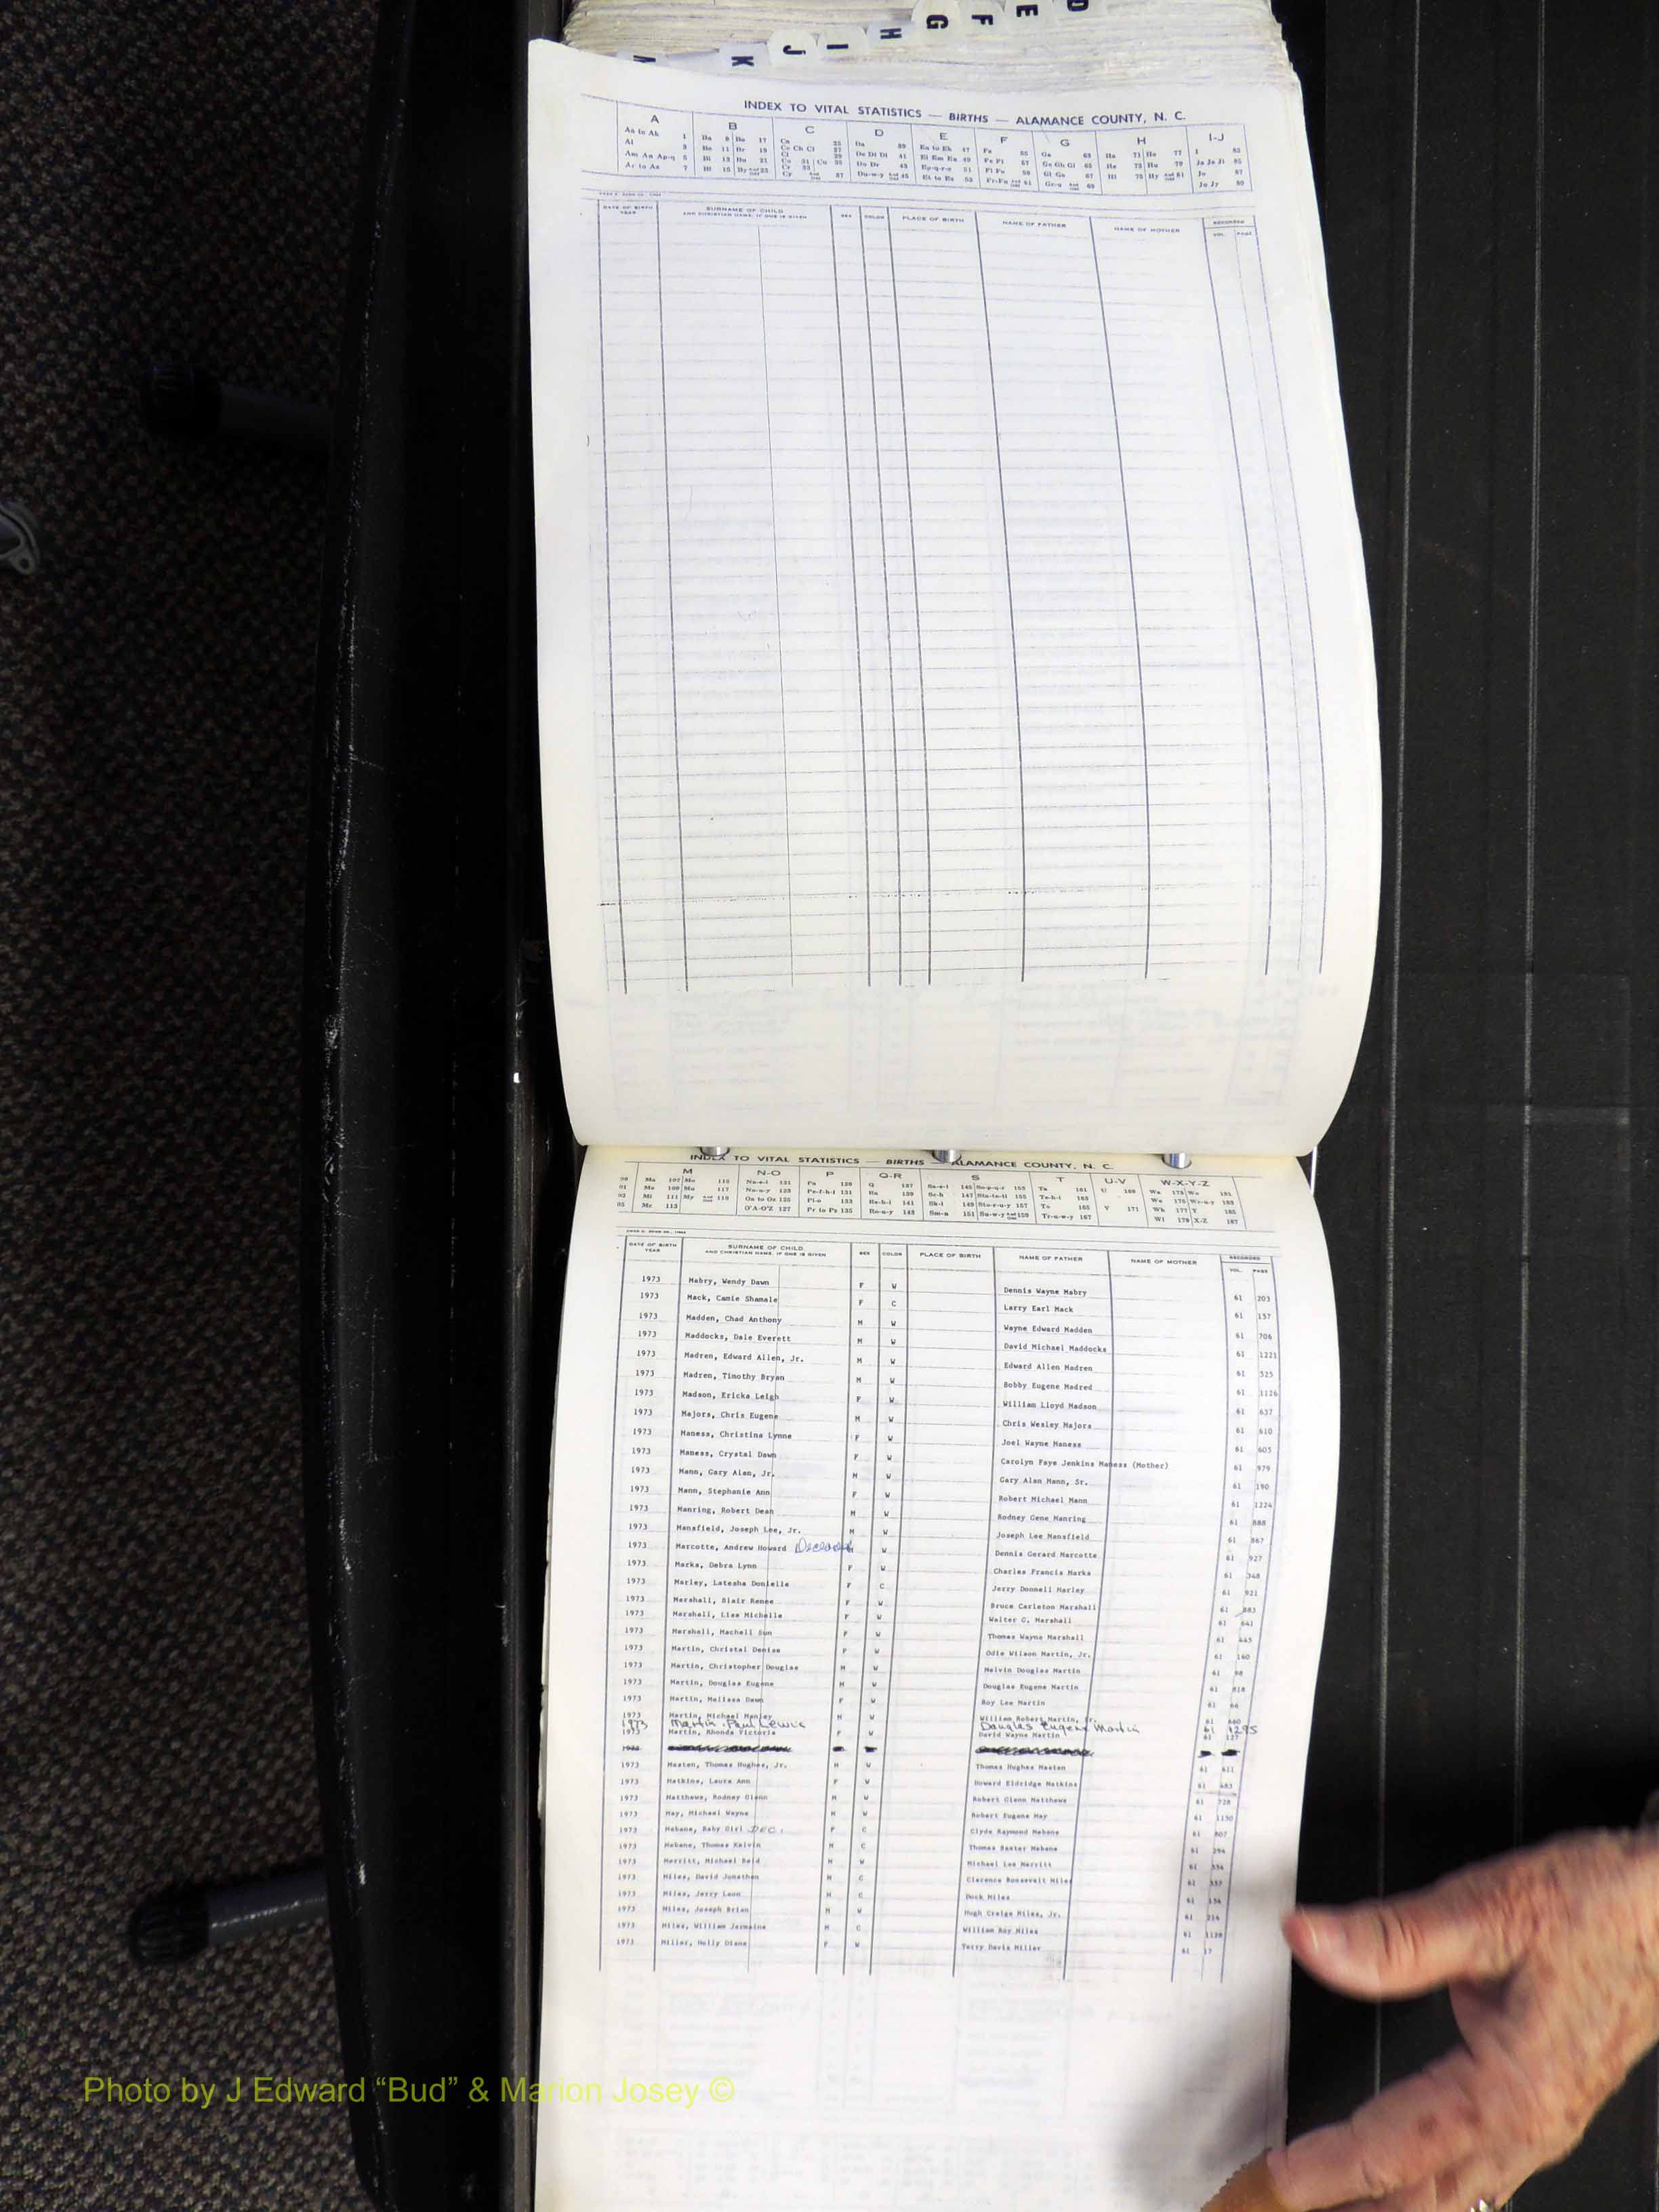 D
E
F
G
H
I
J
K
INDEX TO VITAL STATISTICS — BIRTHS — ALAMANCE COUNTY, N. C.
A B C D E F G H I-J
DATE OF BIRTH YEAR SURNAME OF CHILD AND CHRISTIAN NAME, IF ONE IS GIVEN SEX COLOR PLACE OF BIRTH NAME OF FATHER NAME OF MOTHER RECORDED VOL. PAGE
INDEX TO VITAL STATISTICS — BIRTHS — ALAMANCE COUNTY, N. C.
M N-O P Q-R S T U-V W-X-Y-Z
DATE OF BIRTH YEAR SURNAME OF CHILD AND CHRISTIAN NAME, IF ONE IS GIVEN SEX COLOR PLACE OF BIRTH NAME OF FATHER NAME OF MOTHER RECORDED VOL. PAGE
1973 Mabry, Wendy Dawn F W Dennis Wayne Mabry 61 203
1973 Mack, Camie Shamale F C Larry Earl Mack 61 157
1973 Madden, Chad Anthony M W Wayne Edward Madden 61 706
1973 Maddocks, Dale Everett M W David Michael Maddocks 61 1221
1973 Madren, Edward Allen, Jr. M W Edward Allen Madren 61 525
1973 Madren, Timothy Bryan M W Bobby Eugene Madred 61 1126
1973 Madson, Ericka Leigh F W William Lloyd Madson 61 637
1973 Majors, Chris Eugene M W Chris Wesley Majors 61 610
1973 Maness, Christina Lynne F W Joel Wayne Maness 61 605
1973 Maness, Crystal Dawn F W Carolyn Faye Jenkins Maness (Mother) 61 979
1973 Mann, Gary Alan, Jr. M W Gary Alan Mann, Sr. 61 190
1973 Mann, Stephanie Ann F W Robert Michael Mann 61 1224
1973 Manring, Robert Dean M W Rodney Gene Manring 61 888
1973 Mansfield, Joseph Lee, Jr. M W Joseph Lee Mansfield 61 867
1973 Marcotte, Andrew Howard Deceased W Dennis Gerard Marcotte 61 927
1973 Marks, Debra Lynn F W Charles Francis Marks 61 348
1973 Marley, Latesha Donielle F C Jerry Donnell Marley 61 921
1973 Marshall, Blair Renee F W Bruce Carleton Marshall 61 883
1973 Marshall, Lisa Michelle F W Walter G. Marshall 61 641
1973 Marshall, Machell Sun F W Thomas Wayne Marshall 61 445
1973 Martin, Christal Denise F W Odie Wilson Martin, Jr. 61 160
1973 Martin, Christopher Douglas M W Melvin Douglas Martin 61 98
1973 Martin, Douglas Eugene M W Douglas Eugene Martin 61 818
1973 Martin, Melissa Dawn F W Roy Lee Martin 61 66
1973 Martin, Michael Manley M W William Robert Martin, 61 660
1973 Martin, Paul Lewis Douglas Eugene Martin 61 1295
1973 Martin, Rhonda Victoria F W David Wayne Martin 61 127
1973 Masten, Thomas Hughes, Jr. M W Thomas Hughes Masten 61 611
1973 Matkins, Laura Ann F W Howard Eldridge Matkins 61 483
1973 Matthews, Rodney Glenn M W Robert Glenn Matthews 61 728
1973 May, Michael Wayne M W Robert Eugene May 61 1150
1973 Mebane, Baby Girl DEC. F C Clyde Raymond Mebane 61 807
1973 Mebane, Thomas Kelvin M C Thomas Baxter Mebane 61 294
1973 Merritt, Michael Reid M W Michael Lee Merritt 61
1973 Miles, David Jonathan M C Clarence Roosevelt Miles 61
1973 Miles, Jerry Leon M C Dock Miles 61
1973 Miles, Joseph Brian M W Hugh Craign Miles, Jr. 61
1973 Miles, William Jermaine M C William Roy Miles 61 1128
1973 Miller, Holly Diane F W Terry Davis Miller 61 17
Photo by J Edward “Bud” & Marion Josey ©